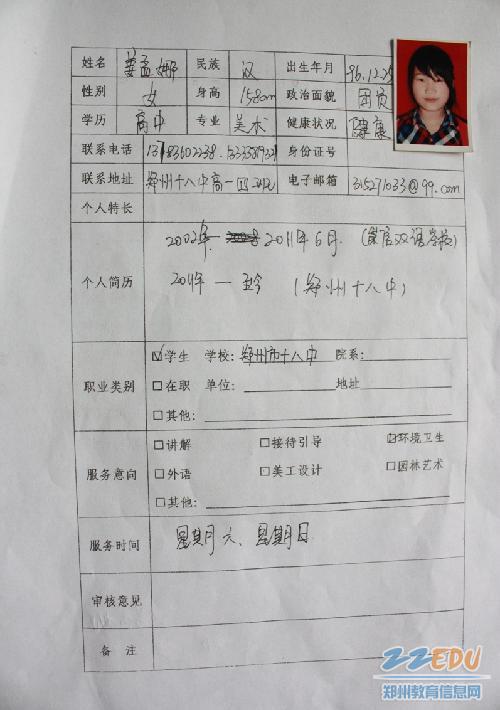 姓名 姜孟娜 民族 汉 出生年月 96.12.25
性别 女 身高 158cm 政治面貌 团员
学历 高中 专业 美术 健康状况 健康
联系电话 身份证号
联系地址 郑州十八中高一 电子邮箱 315271033@qq.com
个人特长
2002年 2011年6月 (双语学校)
个人简历
2011年 — 至今 (郑州十八中)
☑学生 学校:郑州市十八中 院系:
职业类别 □在职 单位: 地址
□其他:
□讲解 □接待引导 ☑环境卫生
服务意向 □外语 □美工设计 □园林艺术
□其他:
服务时间 星期六、星期日
审核意见
备注
ZZEDU
郑州教育信息网